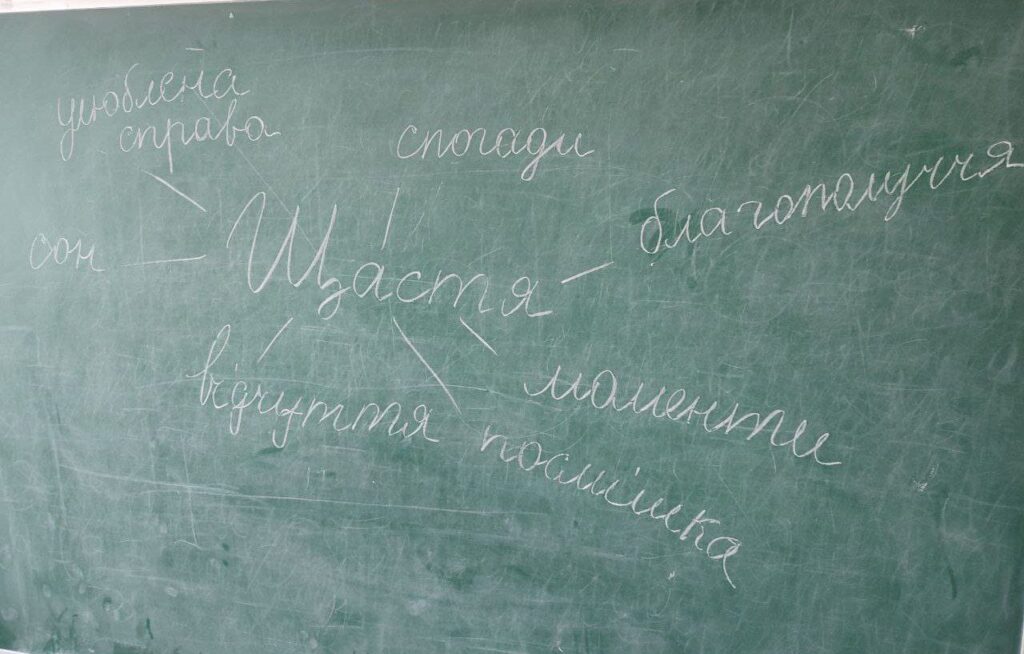 улюблена
справа
спогади
благополуччя
сон
Щастя
відчуття
моменти
посмішка